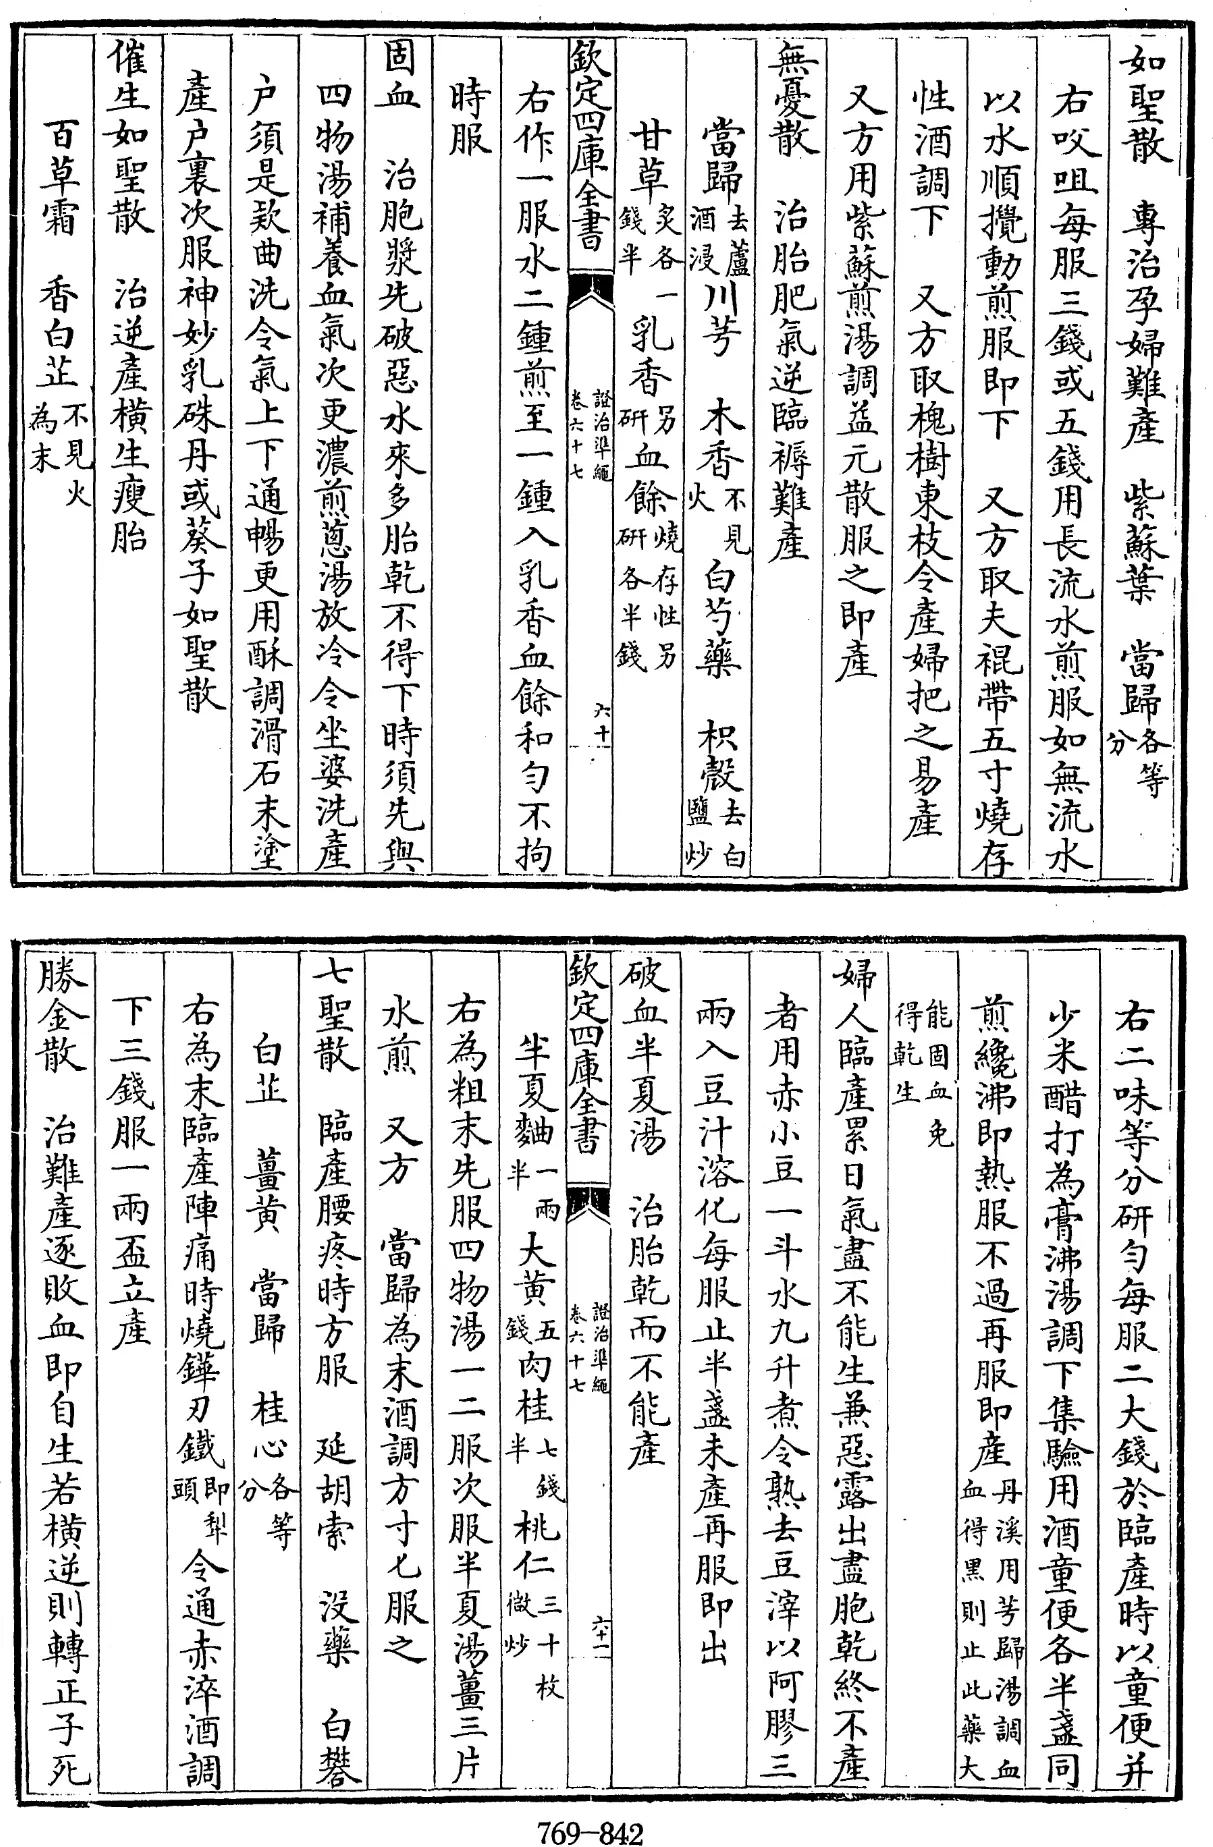 如聖散　專治孕婦難產　紫蘇葉　當歸各等分
右㕮咀每服三錢或五錢用長流水煎服如無流水
以水順攪動煎服即下　又方取夫裩帶五寸燒存
性酒調下　又方取槐樹東枝令產婦把之易產
又方用紫蘇煎湯調益元散服之即產
無憂散　治胎肥氣逆臨褥難產
當歸去蘆酒浸川芎　木香不見火白芍藥　枳殼去白鹽炒
甘草炙各一錢半乳香另研血餘燒存性另研各半錢
欽定四庫全書　證治準繩卷六十七　六十
右作一服水二鍾煎至一鍾入乳香血餘和勻不拘
時服
固血　治胞漿先破惡水來多胎乾不得下時須先與
四物湯補養血氣次更濃煎蔥湯放冷令坐婆洗產
户須是款曲洗令氣上下通暢更用酥調滑石末塗
產户裏次服神妙乳硃丹或葵子如聖散
催生如聖散　治逆產橫生瘦胎
百草霜　香白芷不見火為末
右二味等分研勻每服二大錢於臨產時以童便并
少米醋打為膏沸湯調下集驗用酒童便各半盞同
煎纔沸即熱服不過再服即產丹溪用芎歸湯調血血得黑則止此藥大
能固血免得乾生
婦人臨產累日氣盡不能生兼惡露出盡胞乾終不產
者用赤小豆一斗水九升煮令熟去豆滓以阿膠三
兩入豆汁溶化每服止半盞未產再服即出
破血半夏湯　治胎乾而不能產
欽定四庫全書　證治準繩卷六十七　六十一
半夏麯一兩半大黃五錢肉桂七錢半桃仁三十枚微炒
右為粗末先服四物湯一二服次服半夏湯薑三片
水煎　又方　當歸為末酒調方寸匕服之
七聖散　臨產腰疼時方服　延胡索　沒藥　白礬
白芷　薑黃　當歸　桂心各等分
右為末臨產陣痛時燒鏵刃鐵即犁頭令通赤淬酒調
下三錢服一兩盃立產
勝金散　治難產逐敗血即自生若橫逆則轉正子死
769-842